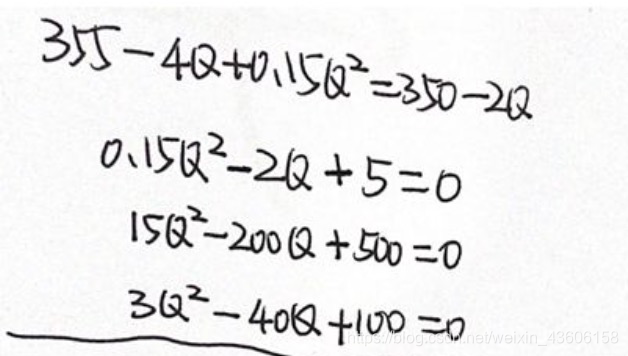 355-4Q+0.15Q²=350-2Q
0.15Q²-2Q+5=0
15Q²-200Q+500=0
3Q²-40Q+100=0
https://blog.csdn.net/weixin_43606158